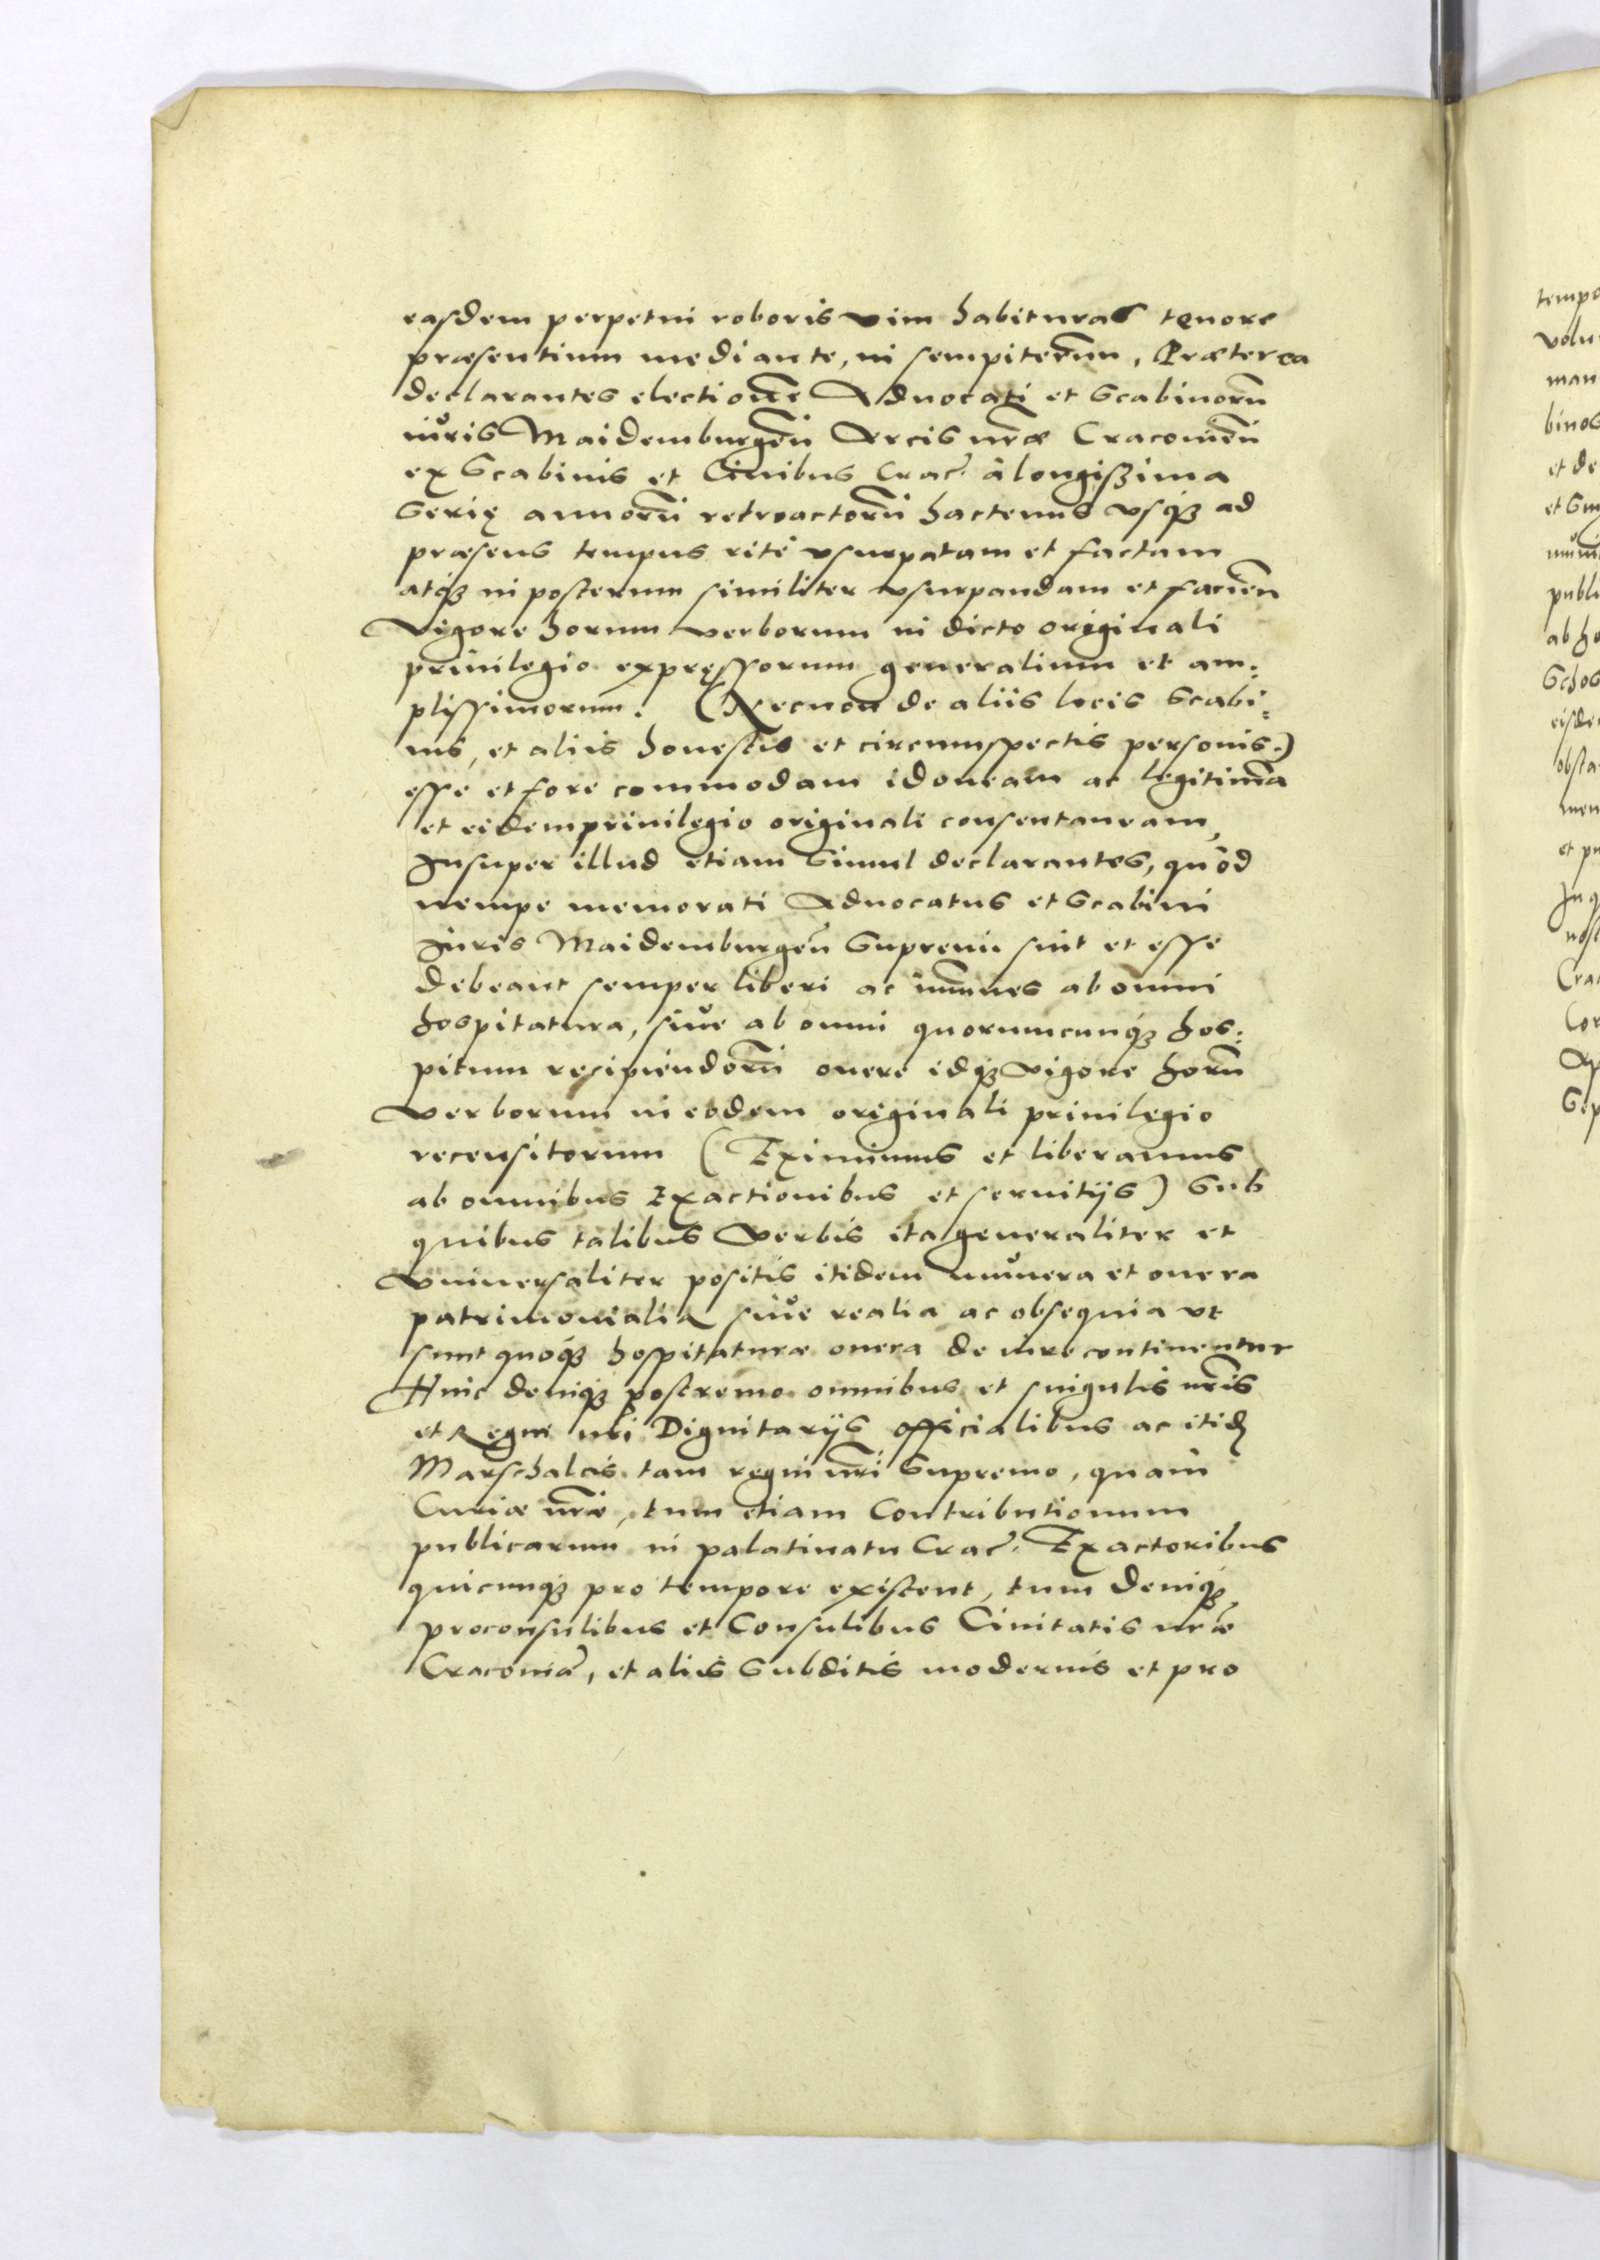 easdem perpetui roboris vim habituras tenore
præsentium mediante, in sempiternū, Præterea
declarantes electionē Aduocati et Scabinorū
iuris Maidemburgeñ Arcis nr̃æ Cracouieñ
ex Scabinis et Ciuibus Crac: à longißima
Serie annorū retroactorū hactenus vsq3 ad
præsens tempus ritè vsurpatam et factam
atq3 in posterum similiter vsurpandam et facień
vigore horum verborum in dicto originali
priuilegio expressorum generalium et am:
plissimorum. (Necnon de aliis locis Scabi:
nis, et aliis honestis et circumspectis personis.)
esse et fore commodam idoneam ac legitimā
et eidem priuilegio originali consentaneam,
Insuper illud etiam Simul declarantes, quòd
nempe memorati Aduocatus et Scabini
Iuris Maidemburgeñ Supremi sint et esse
debeant semper liberi ac im̄unes ab omni
hospitatura, siue ab omni quorumcunq3 hos:
pitum recipiendorū onere idq3 vigore horū
verborum in eodem originali priuilegio
recensitorum (Eximimus et liberamus
ab omnibus Exactionibus et seruitijs) Sub
quibus talibus verbis ita generaliter et
vniuersaliter positis itidem munera et onera
patrimonialia siue realia ac obsequia vt
sunt quoq3 hospitaturæ onera de iure continentur
Huic deniq3 postremo omnibus et singulis nr̃is
et Regni nr̃i Dignitarijs officialibus ac itid̄
Marschalcis tam regni nr̃i Supremo, quàm
Curiæ nr̃æ, tum etiam Contributionum
publicarum in palatinatu Crac: Exactoribus
quicunq3 pro tempore existent, tum deniq3
proconsulibus et Consulibus Ciuitatis nr̃æ
Cracouiæ, et aliis Subditis modernis et pro